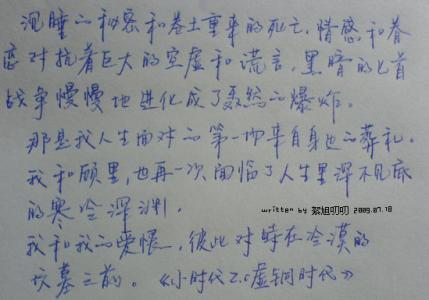 沉睡的秘密和卷土重来的死亡，情感和眷
恋对抗着巨大的空虚和谎言，黑暗的匕首
战争慢慢地进化成了轰然的爆炸。
那是我人生面对的第一场来自身边的葬礼。
我和顾里，也再一次面临了人生里深不见底
的寒冷深渊。
written by 絮旭叨叨 2009.07.18
我和我的爱恨，彼此对峙在冷漠的
坟墓之前。《小时代2.0虚铜时代》